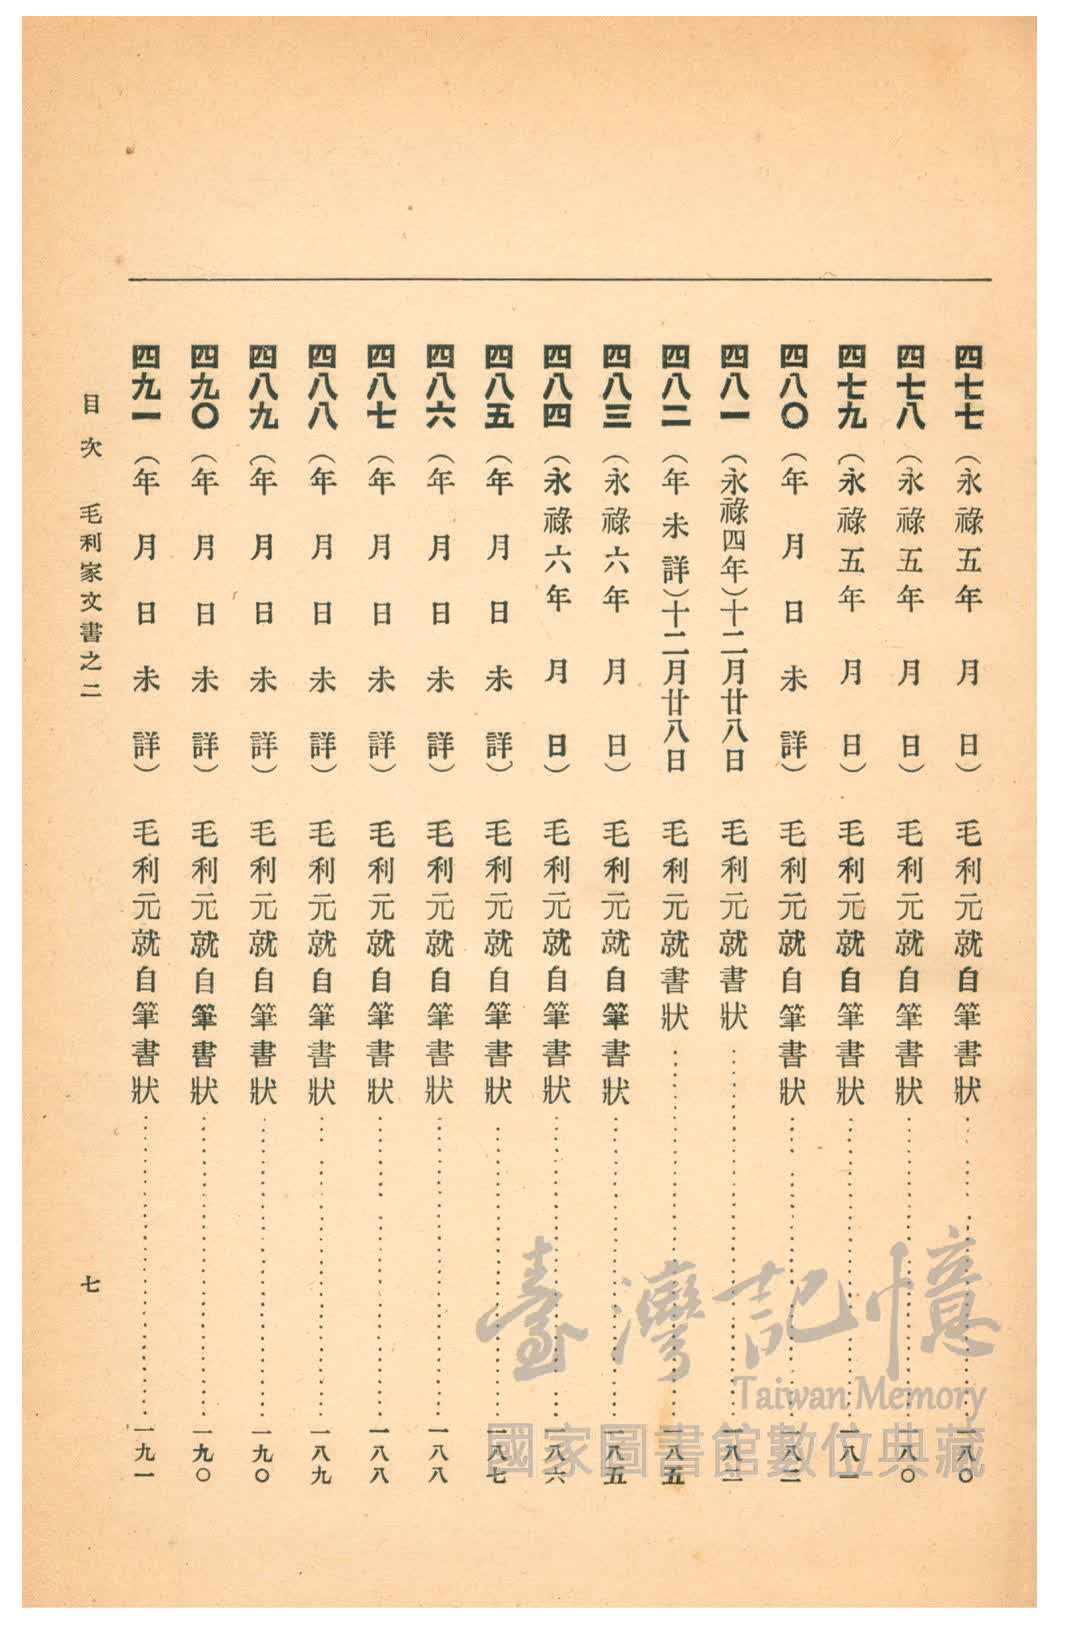 四七七 (永祿五年 月 日) 毛利元就自筆書狀………一八〇
四七八 (永祿五年 月 日) 毛利元就自筆書狀………一八〇
四七九 (永祿五年 月 日) 毛利元就自筆書狀………一八一
四八〇 (年 月 日 未 詳) 毛利元就自筆書狀………一八二
四八一 (永祿四年)十二月廿八日 毛利元就書狀………一八二
四八二 (年未詳)十二月廿八日 毛利元就書狀………一八五
四八三 (永祿六年 月 日) 毛利元就自筆書狀………一八五
四八四 (永祿六年 月 日) 毛利元就自筆書狀………一八六
四八五 (年 月 日 未 詳) 毛利元就自筆書狀………一八七
四八六 (年 月 日 未 詳) 毛利元就自筆書狀………一八八
四八七 (年 月 日 未 詳) 毛利元就自筆書狀………一八八
四八八 (年 月 日 未 詳) 毛利元就自筆書狀………一八九
四八九 (年 月 日 未 詳) 毛利元就自筆書狀………一九〇
四九〇 (年 月 日 未 詳) 毛利元就自筆書狀………一九〇
四九一 (年 月 日 未 詳) 毛利元就自筆書狀………一九一
目次 毛利家文書之二 七
臺灣記憶
Taiwan Memory
國家圖書館數位典藏